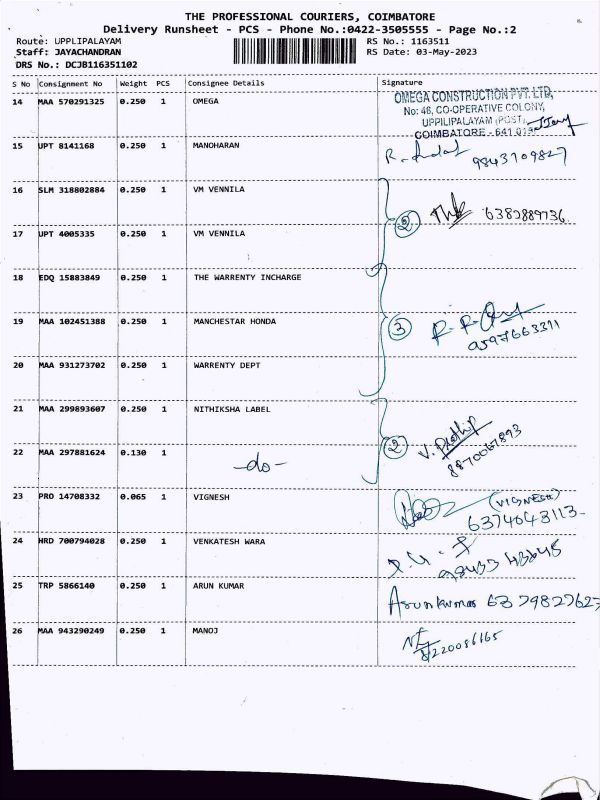 THE PROFESSIONAL COURIERS, COIMBATORE
Delivery Runsheet - PCS - Phone No.:0422-3505555 - Page No.:2
Route: UPPLIPALAYAM RS No.: 1163511
Staff: JAYACHANDRAN RS Date: 03-May-2023
DRS No.: DCJB116351102
S No Consignment No Weight PCS Consignee Details Signature
14 MAA 570291325 0.250 1 OMEGA
OMEGA CONSTRUCTION PVT. LTD,
No: 48, CO-OPERATIVE COLONY,
UPPILIPALAYAM (POST),
COIMBATORE - 641 015
15 UPT 8141168 0.250 1 MANOHARAN 9843109827
16 SLM 318802884 0.250 1 VM VENNILA
2 6382889736
17 UPT 4005335 0.250 1 VM VENNILA
18 EDQ 15883849 0.250 1 THE WARRENTY INCHARGE
19 MAA 102451388 0.250 1 MANCHESTAR HONDA 3
9597663311
20 MAA 931273702 0.250 1 WARRENTY DEPT
21 MAA 299893607 0.250 1 NITHIKSHA LABEL
22 MAA 297881624 0.130 1 -do- 2 V. Prathip
8870067893
23 PRO 14708332 0.065 1 VIGNESH (VIGNESH)
6374643113
24 HRD 700794028 0.250 1 VENKATESH WARA
25 TRP 5866140 0.250 1 ARUN KUMAR Arunkumar
26 MAA 943290249 0.250 1 MANOJ
8220086165